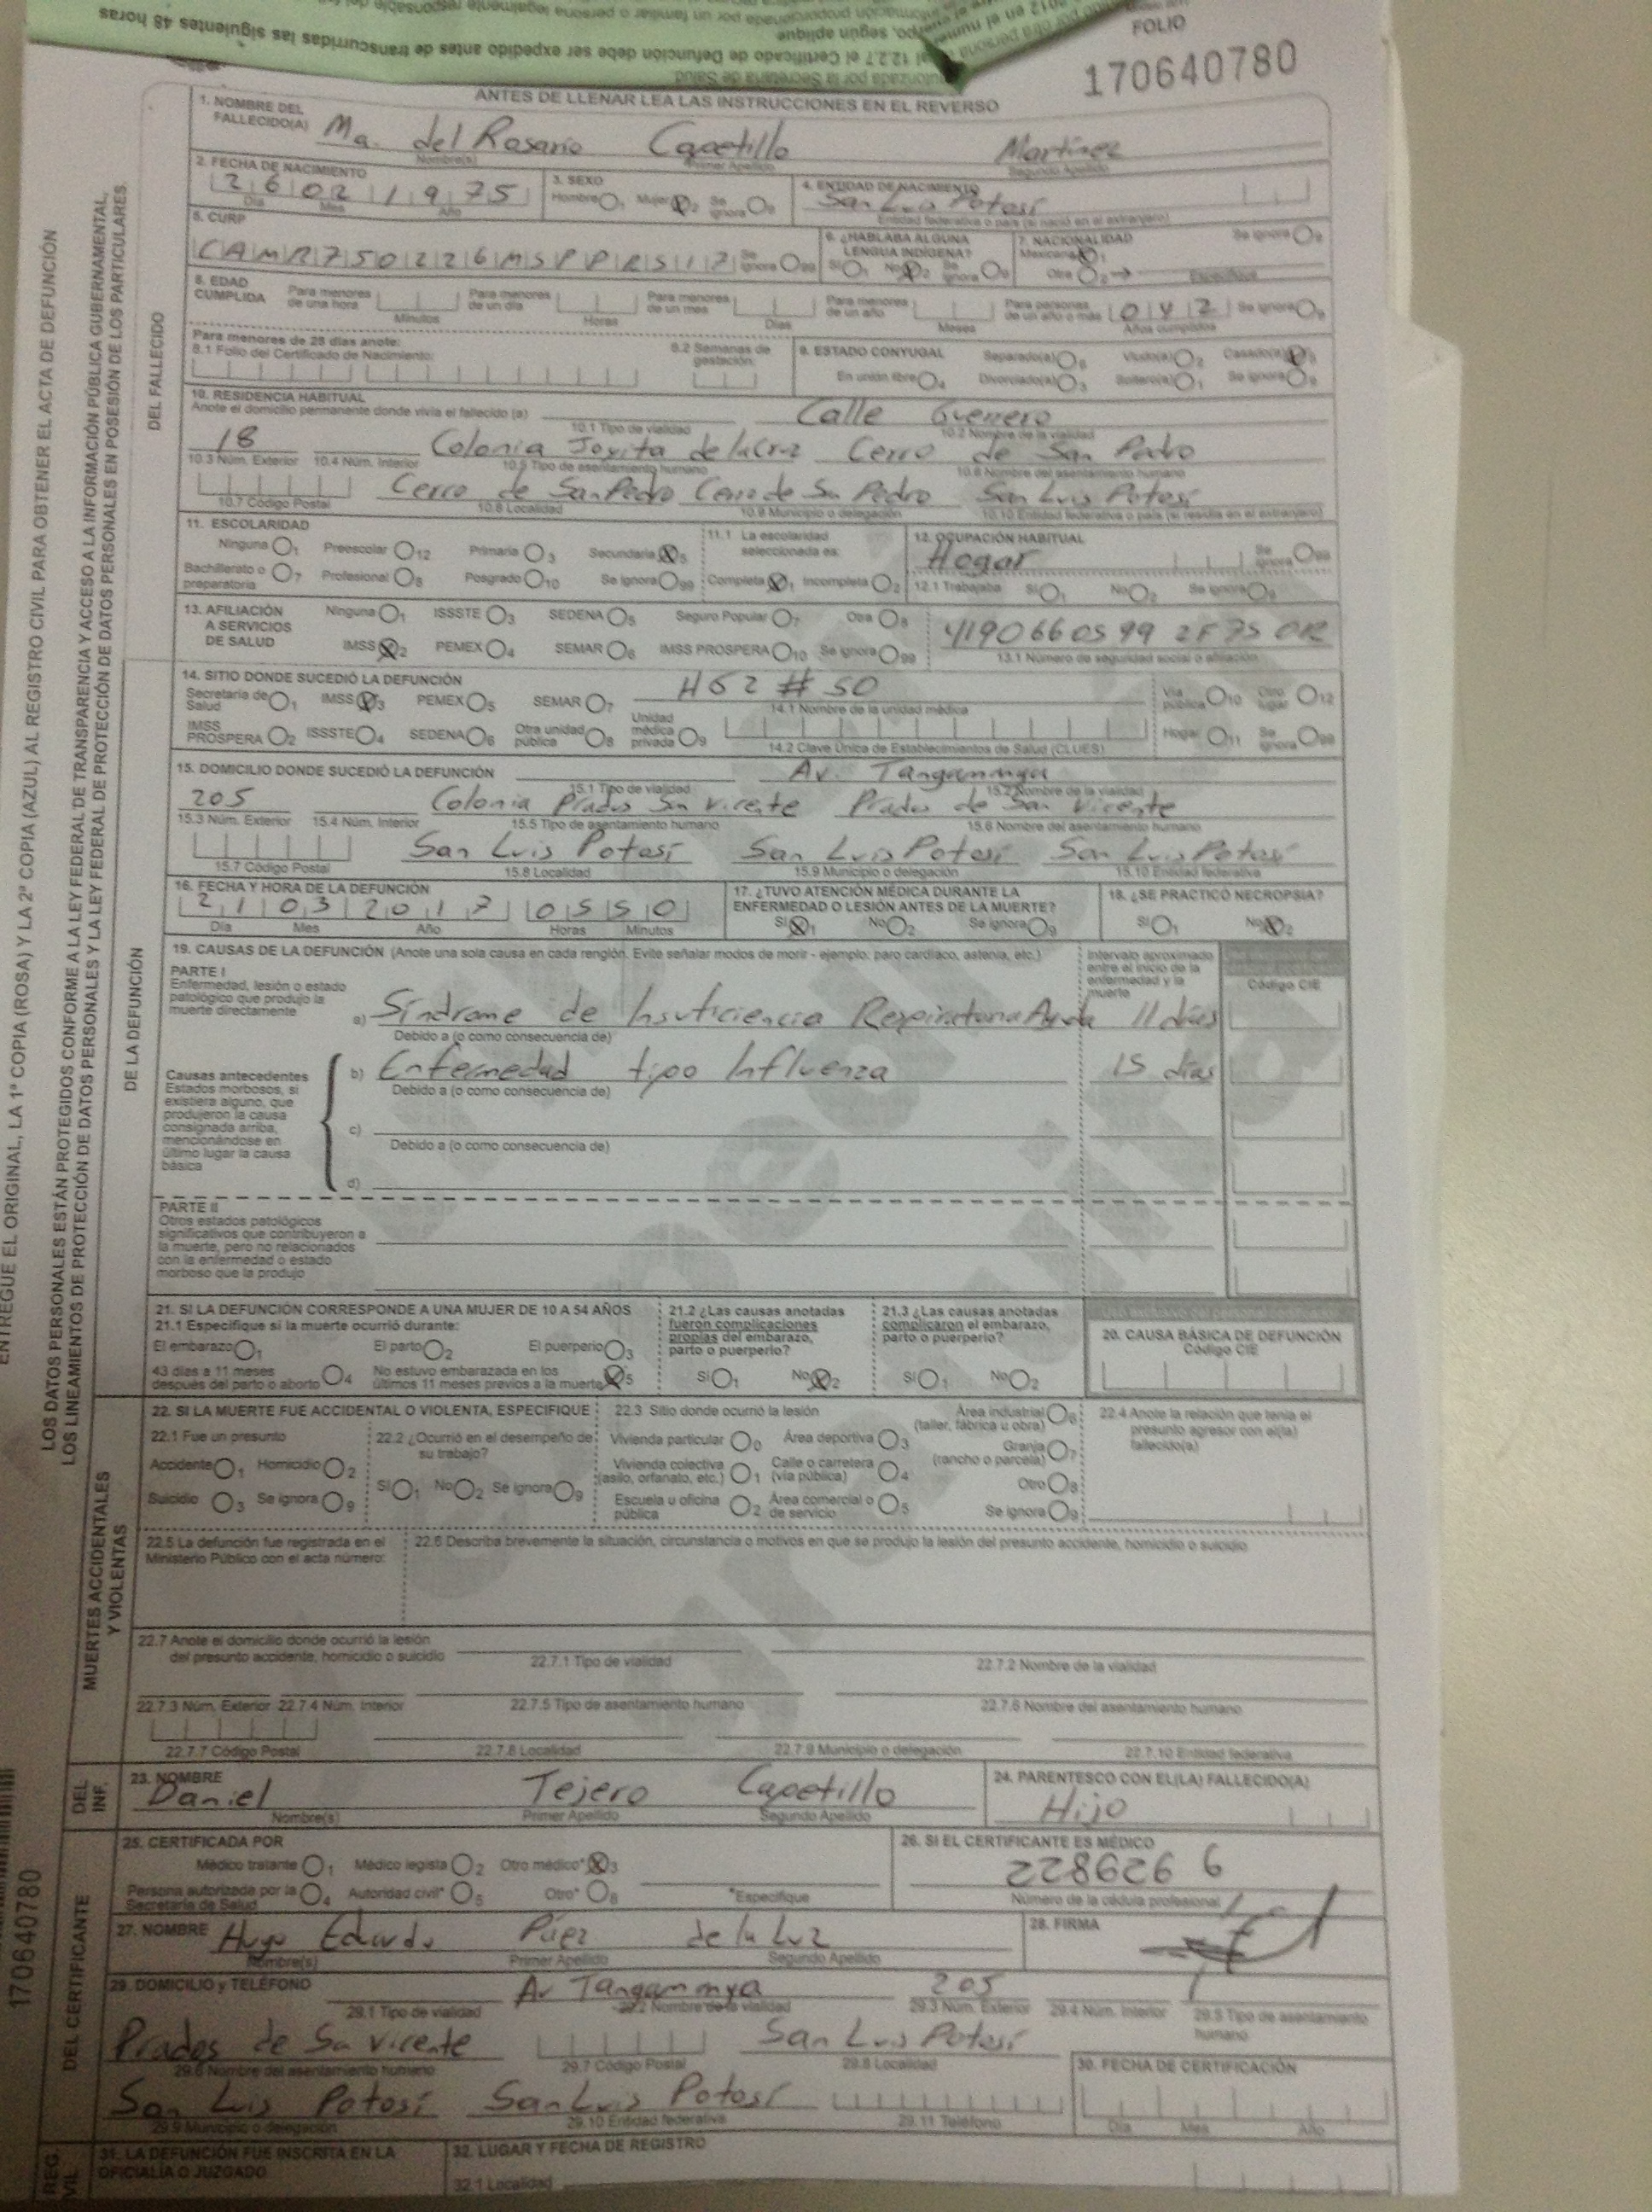 FOLIO
170640780
ANTES DE LLENAR LEA LAS INSTRUCCIONES EN EL REVERSO
1. NOMBRE DEL FALLECIDO(A) Ma. del Rosario Capetillo Martinez
Nombre(s) Primer Apellido Segundo Apellido
2. FECHA DE NACIMIENTO 26 02 1975
Día Mes Año
3. SEXO Hombre 1 Mujer 2 Se ignora 9
4. ENTIDAD DE NACIMIENTO San Luis Potosí
Entidad federativa o país (si nació en el extranjero)
5. CURP CAMR750226MSPPRS17 Se ignora 99
6. ¿HABLABA ALGUNA LENGUA INDÍGENA? Sí 1 No 2 Se ignora 9
7. NACIONALIDAD Mexicana 1 Otra 2 Especifique Se ignora 9
8. EDAD CUMPLIDA Para menores de una hora Minutos Para menores de un día Horas Para menores de un mes Días Para menores de un año Meses Para personas de un año o más 042 Años cumplidos Se ignora 9
Para menores de 28 días anote:
8.1 Folio del Certificado de Nacimiento: 8.2 Semanas de gestación:
9. ESTADO CONYUGAL Separado(a) 6 Viudo(a) 2 Casado(a) 5
En unión libre 4 Divorciado(a) 3 Soltero(a) 1 Se ignora 9
10. RESIDENCIA HABITUAL
Anote el domicilio permanente donde vivía el fallecido (a) Calle Guerrero
10.1 Tipo de vialidad 10.2 Nombre de la vialidad
18 Colonia Joyita de la Cruz Cerro de San Pedro
10.3 Núm. Exterior 10.4 Núm. Interior 10.5 Tipo de asentamiento humano 10.6 Nombre del asentamiento humano
Cerro de San Pedro Cerro de Sn Pedro San Luis Potosí
10.7 Código Postal 10.8 Localidad 10.9 Municipio o delegación 10.10 Entidad federativa o país (si residía en el extranjero)
11. ESCOLARIDAD
Ninguna 1 Preescolar 12 Primaria 3 Secundaria 5
Bachillerato o preparatoria 7 Profesional 8 Posgrado 10 Se ignora 99
11.1 La escolaridad seleccionada es: Completa 1 Incompleta 2
12. OCUPACIÓN HABITUAL Hogar Se ignora
12.1 Trabajaba Sí 1 No 2 Se ignora 9
13. AFILIACIÓN A SERVICIOS DE SALUD
Ninguna 1 ISSSTE 3 SEDENA 5 Seguro Popular 7 Otra 8
IMSS 2 PEMEX 4 SEMAR 6 IMSS PROSPERA 10 Se ignora 99
4190660599 2F75 OR
13.1 Número de seguridad social o afiliación
14. SITIO DONDE SUCEDIÓ LA DEFUNCIÓN
Secretaría de Salud 1 IMSS 3 PEMEX 5 SEMAR 7
# 50
14.1 Nombre de la unidad médica
Vía pública 10 Otro lugar 12
IMSS PROSPERA 2 ISSSTE 4 SEDENA 6 Otra unidad pública 8 Unidad médica privada 9
14.2 Clave Única de Establecimientos de Salud (CLUES)
Hogar 11 Se ignora 99
15. DOMICILIO DONDE SUCEDIÓ LA DEFUNCIÓN Av. Tangamanga
15.1 Tipo de vialidad 15.2 Nombre de la vialidad
205 Colonia Prados Sn Vicente Prados de San Vicente
15.3 Núm. Exterior 15.4 Núm. Interior 15.5 Tipo de asentamiento humano 15.6 Nombre del asentamiento humano
San Luis Potosí San Luis Potosí San Luis Potosí
15.7 Código Postal 15.8 Localidad 15.9 Municipio o delegación 15.10 Entidad federativa
16. FECHA Y HORA DE LA DEFUNCIÓN
21 03 2017 05 50
Día Mes Año Horas Minutos
17. ¿TUVO ATENCIÓN MÉDICA DURANTE LA ENFERMEDAD O LESIÓN ANTES DE LA MUERTE?
Sí 1 No 2 Se ignora 9
18. ¿SE PRACTICÓ NECROPSIA?
Sí 1 No 2
19. CAUSAS DE LA DEFUNCIÓN (Anote una sola causa en cada renglón. Evite señalar modos de morir - ejemplo: paro cardíaco, astenia, etc.)
Intervalo aproximado entre el inicio de la enfermedad y la muerte
Código CIE
PARTE I
Enfermedad, lesión o estado patológico que produjo la muerte directamente
a) Síndrome de Insuficiencia Respiratoria Aguda 11 días
Debido a (o como consecuencia de)
Causas antecedentes
Estados morbosos, si existiera alguno, que produjeron la causa consignada arriba, mencionándose en último lugar la causa básica
b) Enfermedad tipo Influenza 15 días
Debido a (o como consecuencia de)
c)
Debido a (o como consecuencia de)
d)
PARTE II
Otros estados patológicos significativos que contribuyeron a la muerte, pero no relacionados con la enfermedad o estado morboso que la produjo
21. SI LA DEFUNCIÓN CORRESPONDE A UNA MUJER DE 10 A 54 AÑOS
21.1 Especifique si la muerte ocurrió durante:
El embarazo 1 El parto 2 El puerperio 3
43 días a 11 meses después del parto o aborto 4 No estuvo embarazada en los últimos 11 meses previos a la muerte 5
21.2 ¿Las causas anotadas fueron complicaciones propias del embarazo, parto o puerperio?
Sí 1 No 2
21.3 ¿Las causas anotadas complicaron el embarazo, parto o puerperio?
Sí 1 No 2
20. CAUSA BÁSICA DE DEFUNCIÓN
Código CIE
22. SI LA MUERTE FUE ACCIDENTAL O VIOLENTA, ESPECIFIQUE
22.1 Fue un presunto
Accidente 1 Homicidio 2
Suicidio 3 Se ignora 9
22.2 ¿Ocurrió en el desempeño de su trabajo?
Sí 1 No 2 Se ignora 9
22.3 Sitio donde ocurrió la lesión
Vivienda particular 0 Área deportiva 3 Área industrial (taller, fábrica u obra) 6
Vivienda colectiva (asilo, orfanato, etc.) 1 Calle o carretera (vía pública) 4 Granja (rancho o parcela) 7
Otro 8
Escuela u oficina pública 2 Área comercial o de servicio 5 Se ignora 9
22.4 Anote la relación que tenía el presunto agresor con el(la) fallecido(a)
22.5 La defunción fue registrada en el Ministerio Público con el acta número:
22.6 Describa brevemente la situación, circunstancia o motivos en que se produjo la lesión del presunto accidente, homicidio o suicidio
22.7 Anote el domicilio donde ocurrió la lesión del presunto accidente, homicidio o suicidio
22.7.1 Tipo de vialidad 22.7.2 Nombre de la vialidad
22.7.3 Núm. Exterior 22.7.4 Núm. Interior 22.7.5 Tipo de asentamiento humano 22.7.6 Nombre del asentamiento humano
22.7.7 Código Postal 22.7.8 Localidad 22.7.9 Municipio o delegación 22.7.10 Entidad federativa
23. NOMBRE
Daniel Tejero Capetillo
Nombre(s) Primer Apellido Segundo Apellido
24. PARENTESCO CON EL(LA) FALLECIDO(A)
Hijo
25. CERTIFICADA POR
Médico tratante 1 Médico legista 2 Otro médico* 3
Persona autorizada por la Secretaría de Salud 4 Autoridad civil* 5 Otro* 8 *Especifique
26. SI EL CERTIFICANTE ES MÉDICO
Número de la cédula profesional
27. NOMBRE Hugo Eduardo Páez de la Luz
Nombre(s) Primer Apellido Segundo Apellido
28. FIRMA
29. DOMICILIO y TELÉFONO Av Tangamanga 205
29.1 Tipo de vialidad 29.2 Nombre de la vialidad 29.3 Núm. Exterior 29.4 Núm. Interior 29.5 Tipo de asentamiento humano
Prados de Sn Vicente San Luis Potosí
29.6 Nombre del asentamiento humano 29.7 Código Postal 29.8 Localidad
San Luis Potosí San Luis Potosí
29.9 Municipio o delegación 29.10 Entidad federativa 29.11 Teléfono
30. FECHA DE CERTIFICACIÓN
Día Mes Año
31. LA DEFUNCIÓN FUE INSCRITA EN LA OFICIALÍA O JUZGADO
32. LUGAR Y FECHA DE REGISTRO
32.1 Localidad
DEL FALLECIDO
DE LA DEFUNCIÓN
MUERTES ACCIDENTALES Y VIOLENTAS
DEL INF.
DEL CERTIFICANTE
REG.
ENTREGUE EL ORIGINAL, LA 1ª COPIA (ROSA) Y LA 2ª COPIA (AZUL) AL REGISTRO CIVIL PARA OBTENER EL ACTA DE DEFUNCIÓN
LOS DATOS PERSONALES ESTÁN PROTEGIDOS CONFORME A LA LEY FEDERAL DE TRANSPARENCIA Y ACCESO A LA INFORMACIÓN PÚBLICA GUBERNAMENTAL,
LOS LINEAMIENTOS DE PROTECCIÓN DE DATOS PERSONALES Y LA LEY FEDERAL DE PROTECCIÓN DE DATOS PERSONALES EN POSESIÓN DE LOS PARTICULARES.
170640780
12.2.7 el Certificado de Defunción debe ser expedido antes de transcurridas las siguientes 48 horas
autorizada por la Secretaría de Salud